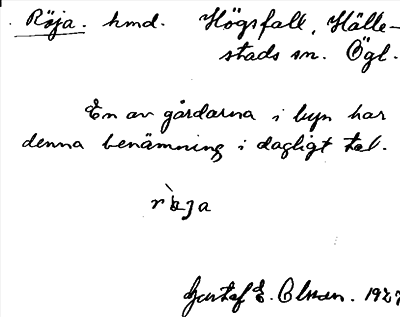 Röja. hmd. Högsfall, Hälle-
stads sn. Ögl.
En av gårdarna i byn har
denna benämning i dagligt tal.
Gustaf E. Olsson. 1927